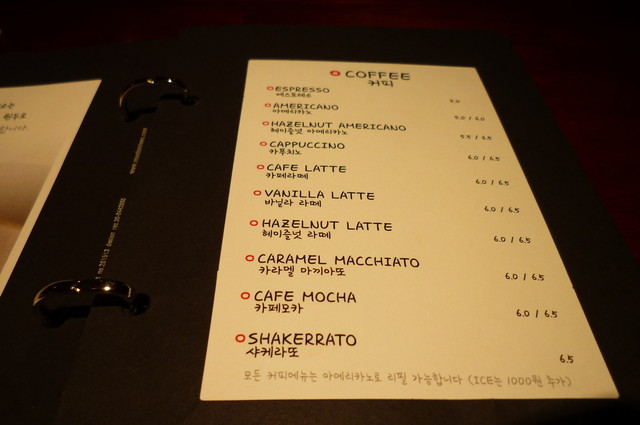 COFFEE
커피
ESPRESSO
에스프레소
5.0
AMERICANO
아메리카노
5.0 / 6.0
HAZELNUT AMERICANO
헤이즐넛 아메리카노
5.5 / 6.5
CAPPUCCINO
카푸치노
6.0 / 6.5
CAFE LATTE
카페라떼
6.0 / 6.5
VANILLA LATTE
바닐라 라떼
6.0 / 6.5
HAZELNUT LATTE
헤이즐넛 라떼
6.0 / 6.5
CARAMEL MACCHIATO
카라멜 마끼아또
6.0 / 6.5
CAFE MOCHA
카페모카
6.0 / 6.5
SHAKERRATO
샤케라또
6.5
모든 커피메뉴는 아메리카노로 리필 가능합니다 (ICE는 1000원 추가)